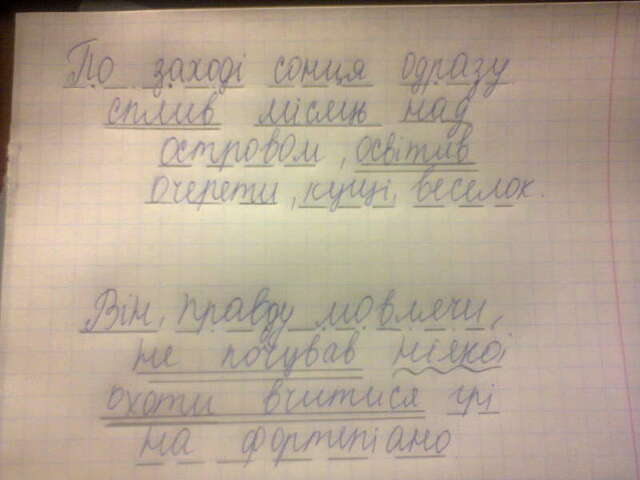 По заході сонця одразу
сплив місяць над
островом, освітив
очерети, кущі, веселок.
Він, правду мовлячи,
не почував ніякої
охоти вчитися грі
на фортепіано